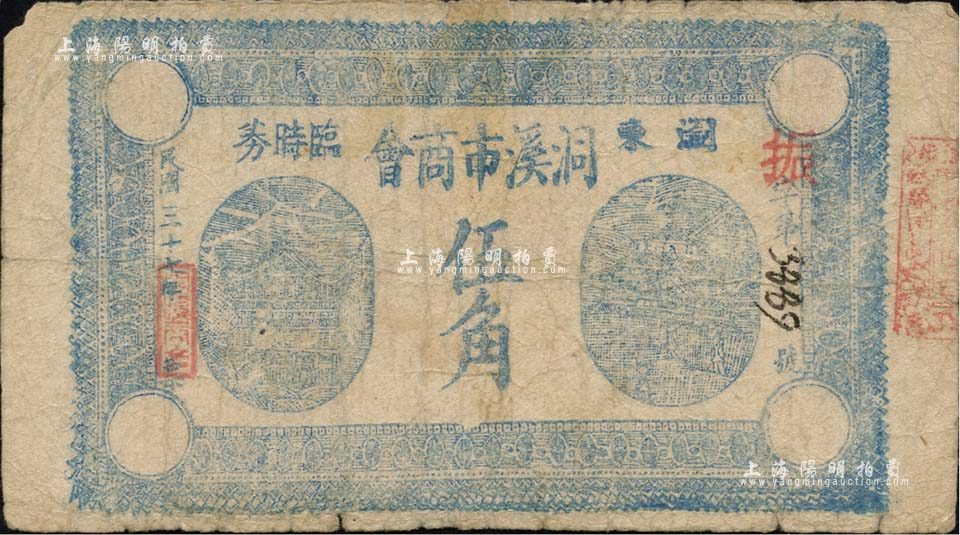 瀏東
洞溪市商會
臨時券
伍角
振
字第
3889
號
民國二十
年
上海陽明拍賣
www.yangmingauction.com
上海陽明拍賣
www.yangmingauction.com
上海陽明拍賣
www.yangmingauction.com